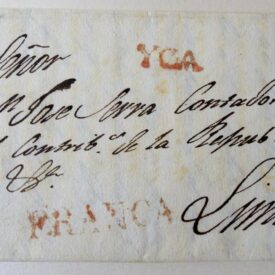 Señor
YCA
n Jose Serra Contador
l Contrib.^s de la Repub
&.^a
FRANCA
Lim